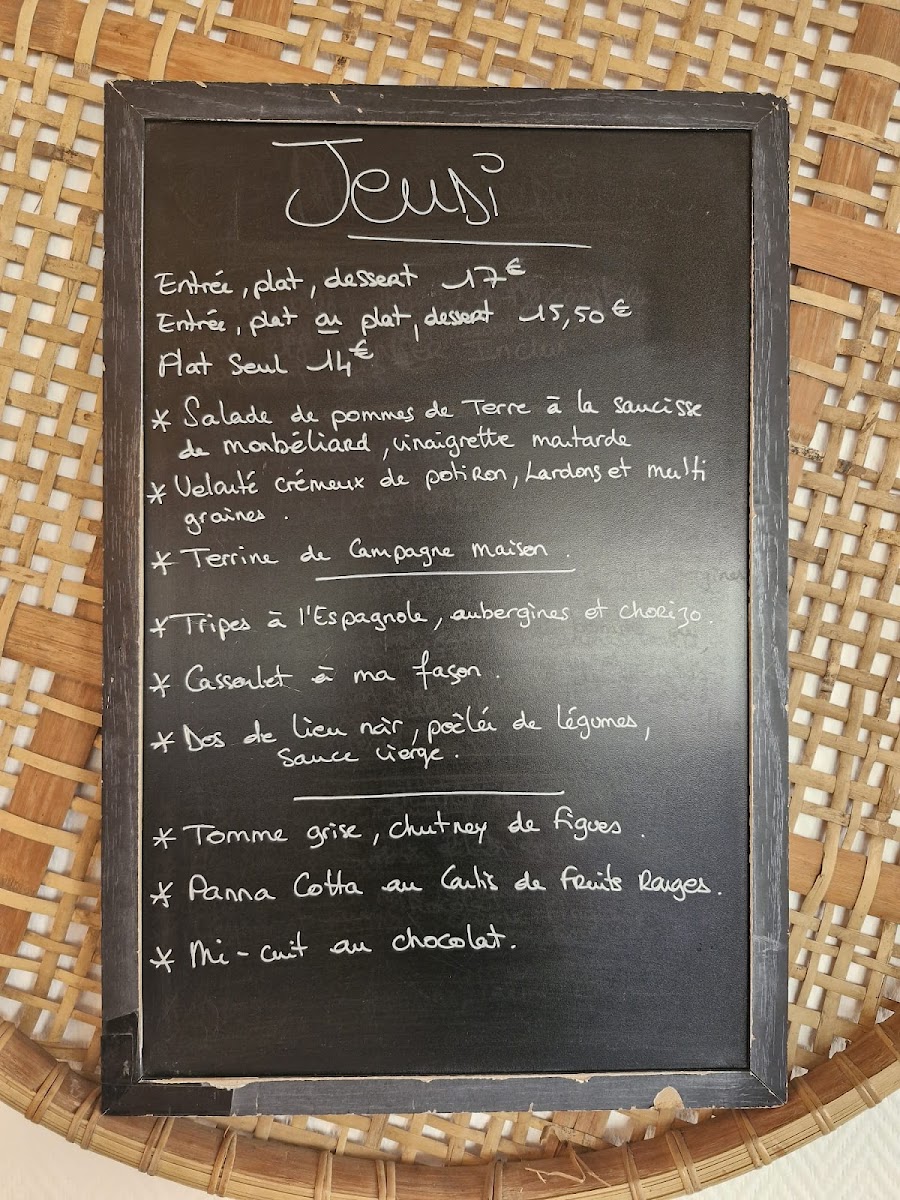 Jeudi
Entrée, plat, dessert 17€
Entrée, plat ou plat, dessert 15,50€
Plat seul 14€
* Salade de pommes de Terre à la saucisse
de monbéliard, vinaigrette moutarde
* Velouté crémeux de potiron, Lardons et multi
graines.
* Terrine de Campagne maison.
* Tripes à l'Espagnole, aubergines et chorizo.
* Cassoulet à ma façon.
* Dos de lieu noir, poêlée de légumes,
sauce vierge.
* Tomme grise, chutney de figues.
* Panna Cotta au Coulis de Fruits Rouges.
* Mi-cuit au chocolat.